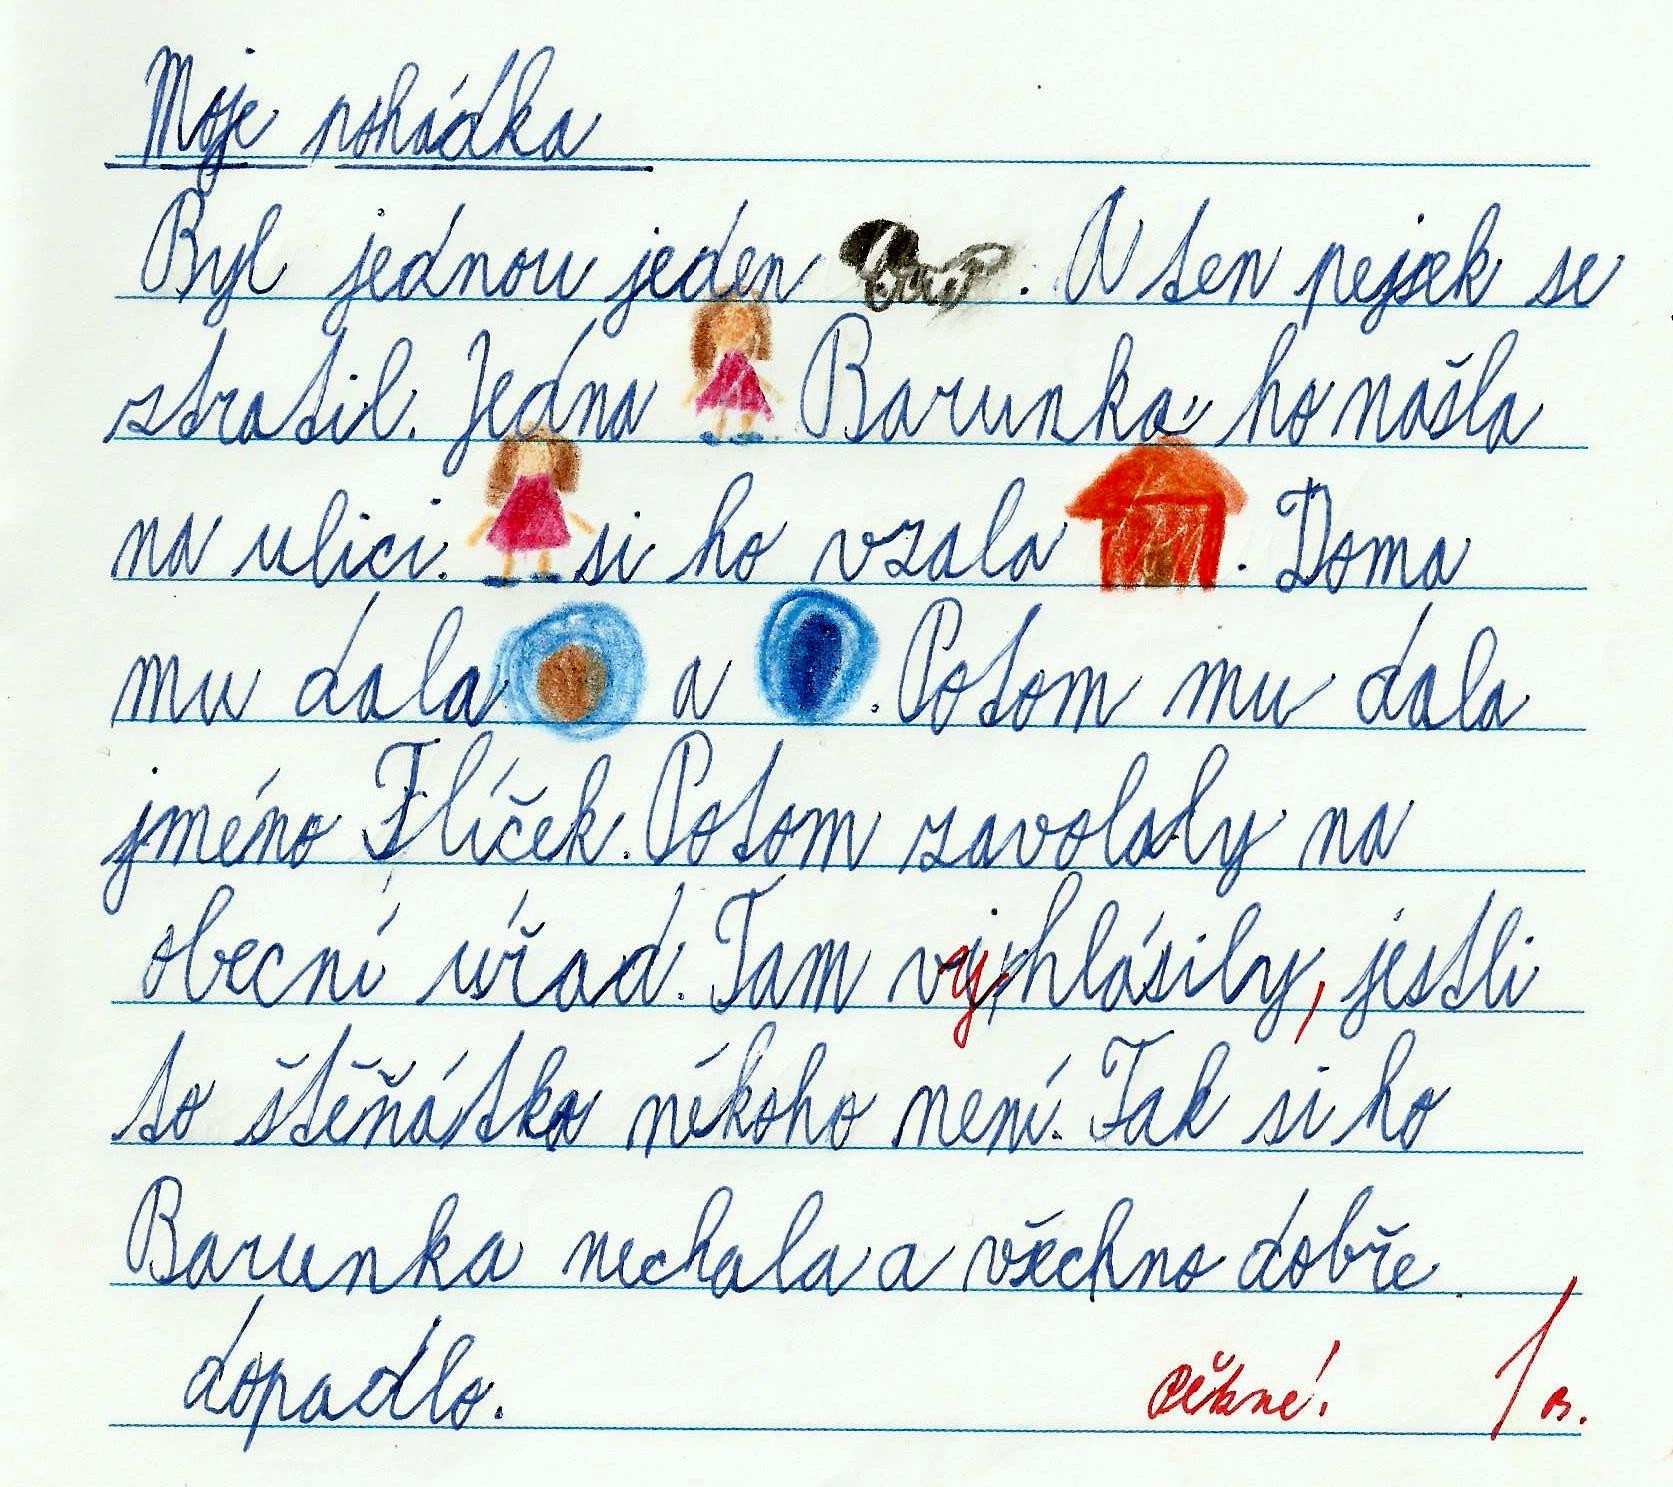 Moje pohádka
Byl jednou jeden . A ten pejsek se
ztratil. Jedna Barunka ho našla
na ulici. si ho vzala . Doma
mu dala a . Potom mu dala
jméno Flíček. Potom zavolaly na
obecní úřad. Tam vyhlásily, jestli
to štěňátko někoho není. Tak si ho
Barunka nechala a všechno dobře
dopadlo.
Pěkné! 1